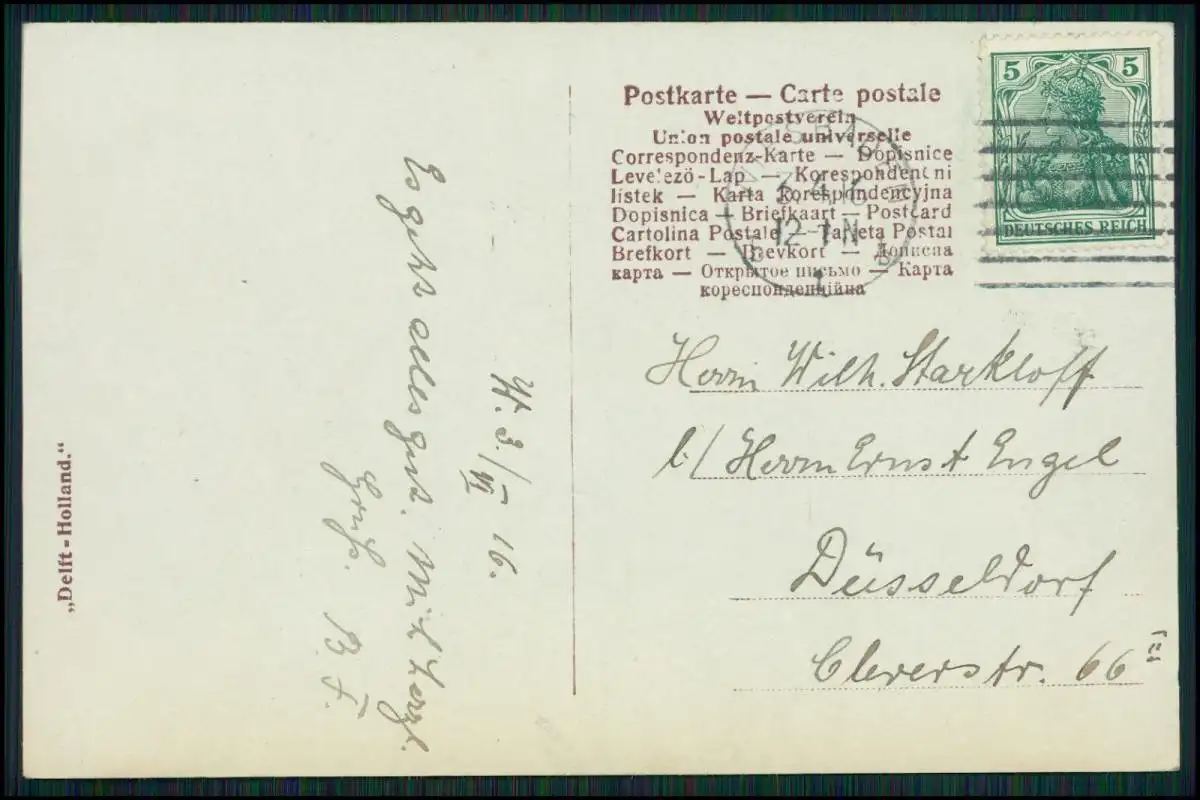 Postkarte — Carte postale
Weltpostverein
Union postale universelle
Correspondenz-Karte — Dopisnice
Levelezö-Lap — Korespondentni
listek — Karta korespondencyjna
Dopisnica — Briefkaart — Postcard
Cartolina Postale — Tarjeta Postal
Brefkort — Brevkort — Дописна
карта — Открытое письмо — Карта
кореспонденційна
5 5
DEUTSCHES REICH
12-1N
Herrn Wilh. Starkloff
b./ Herrn Ernst Engel
Düsseldorf
Cleverstr. 66
3./VI 16.
Es geht alles gut. Mit herzl.
Gruß. B. F.
„Delft-Holland.“